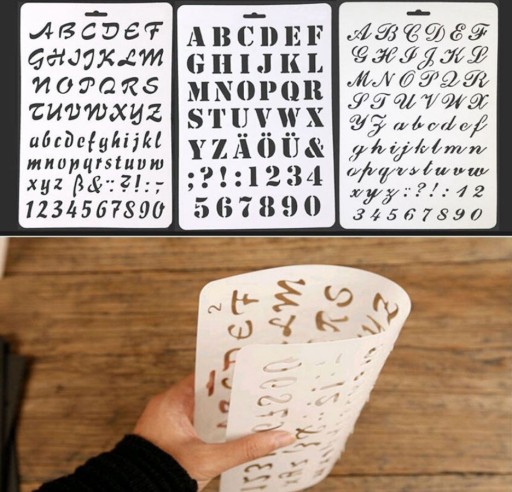 ABCDEF
GHIJKLM
NOPQRS
TUVWXYZ
abcdefghijkl
mnopqrstuvw
xyz ß&:;?!:,-
1234567890
ABCDEF
GHIJKL
MNOPQR
STUVWX
YZÄÖÜ&
;?!:1234
567890
ABCDEF
GHIJKL
MNOPQR
STUVWX
YZ abcdef
ghijklmn
opqrstuvw
xyz:?!:12
34567890
2